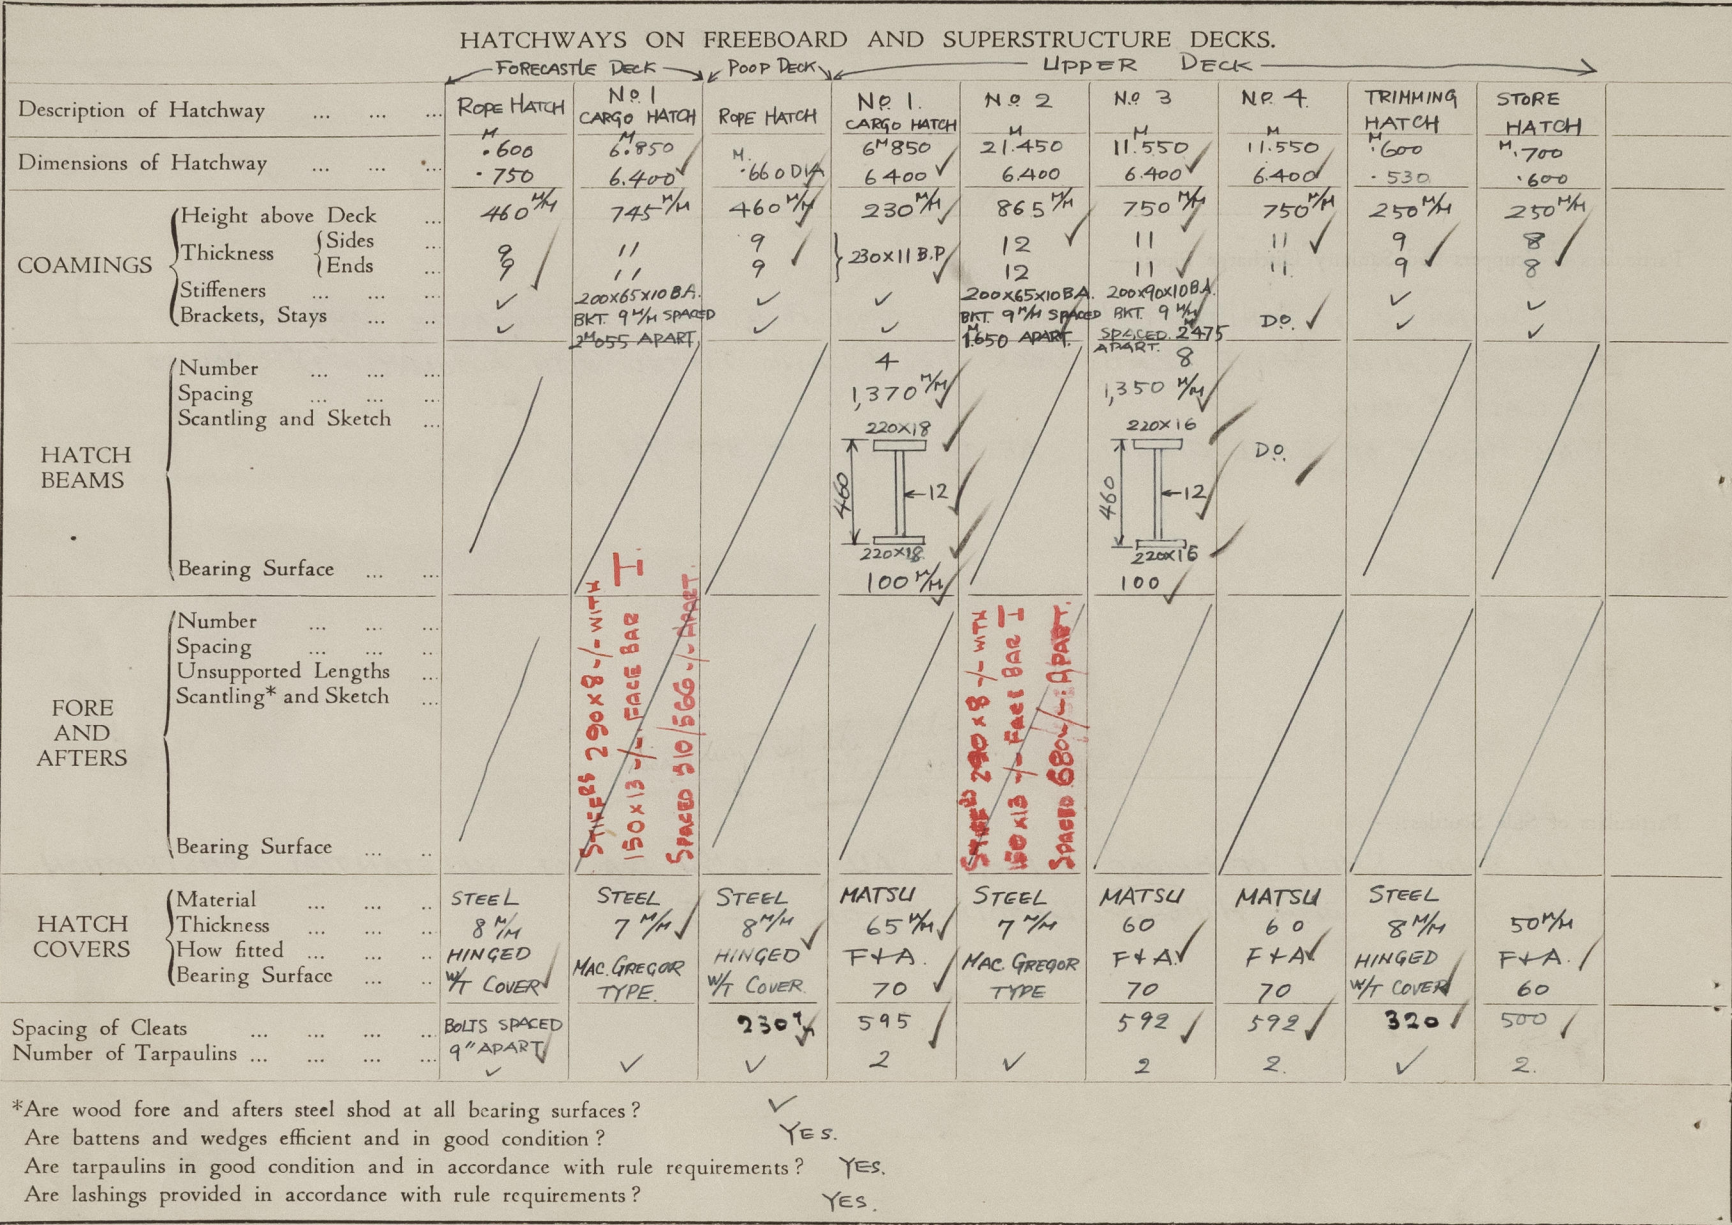 HATCHWAYS ON FREEBOARD AND SUPERSTRUCTURE DECKS.
FORECASTLE DECK POOP DECK UPPER DECK
Description of Hatchway ... ... ... ROPE HATCH No 1 CARGO HATCH ROPE HATCH No 1. CARGO HATCH No 2 No 3 No. 4. TRIMMING HATCH STORE HATCH
Dimensions of Hatchway ... ... ... M .600 M 6.850 M. 6M850 M 21.450 M 11.550 M 11.550 M .600 M .700
.750 6.400 .660 DIA 6400 6.400 6.400 6.400 .530 .600
COAMINGS
Height above Deck ... 460 M/M 745 M/M 460 M/M 230 M/M 865 M/M 750 M/M 750 M/M 250 M/M 250 M/M
Thickness Sides ... 9 11 9 230×11 B.P 12 11 11 9 8
Ends ... 9 11 9 12 11 11 9 8
Stiffeners ... ... ... ✓ 200×65×10 B.A. ✓ ✓ 200×65×10 B.A. 200×90×10 B.A. ✓ ✓
Brackets, Stays ... .. ✓ BKT. 9 M/M SPACED 2M055 APART ✓ ✓ BKT. 9 M/M SPACED M 1.650 APART. BKT. 9 M/M SPACED. 2475 APART. DO. ✓ ✓
HATCH BEAMS
Number ... ... ... 4 8
Spacing ... ... ... 1,370 M/M 1,350 M/M
Scantling and Sketch ... 220×18 220×16 DO.
460 12 460 12
220×18 220×16
Bearing Surface ... ... 100 M/M 100
FORE AND AFTERS
Number ... ... ...
Spacing ... ... ..
Unsupported Lengths ...
Scantling* and Sketch ...
Bearing Surface ... ..
STIFFRS 290×8 -/- WITH
150×13 -/- FACE BAR
SPACED 510/566 -/- APART.
STIFFRS 290×8 -/- WITH
150×13 -/- FACE BAR
SPACED 680 -/- APART.
HATCH COVERS
Material ... ... .. STEEL STEEL STEEL MATSU STEEL MATSU MATSU STEEL
Thickness ... ... .. 8 M/M 7 M/M 8 M/M 65 M/M 7 M/M 60 60 8 M/M 50 M/M
How fitted ... ... .. HINGED MAC. GREGOR HINGED F+A. MAC. GREGOR F+A F+A HINGED F+A.
Bearing Surface ... .. W/T COVER TYPE. W/T COVER 70 TYPE 70 70 W/T COVER 60
Spacing of Cleats ... ... ... .. BOLTS SPACED 9" APART 230 595 592 592 320 500
Number of Tarpaulins ... ... ... .. ✓ ✓ ✓ 2 ✓ 2 2. ✓ 2.
*Are wood fore and afters steel shod at all bearing surfaces? ✓
Are battens and wedges efficient and in good condition? YES.
Are tarpaulins in good condition and in accordance with rule requirements? YES.
Are lashings provided in accordance with rule requirements? YES.